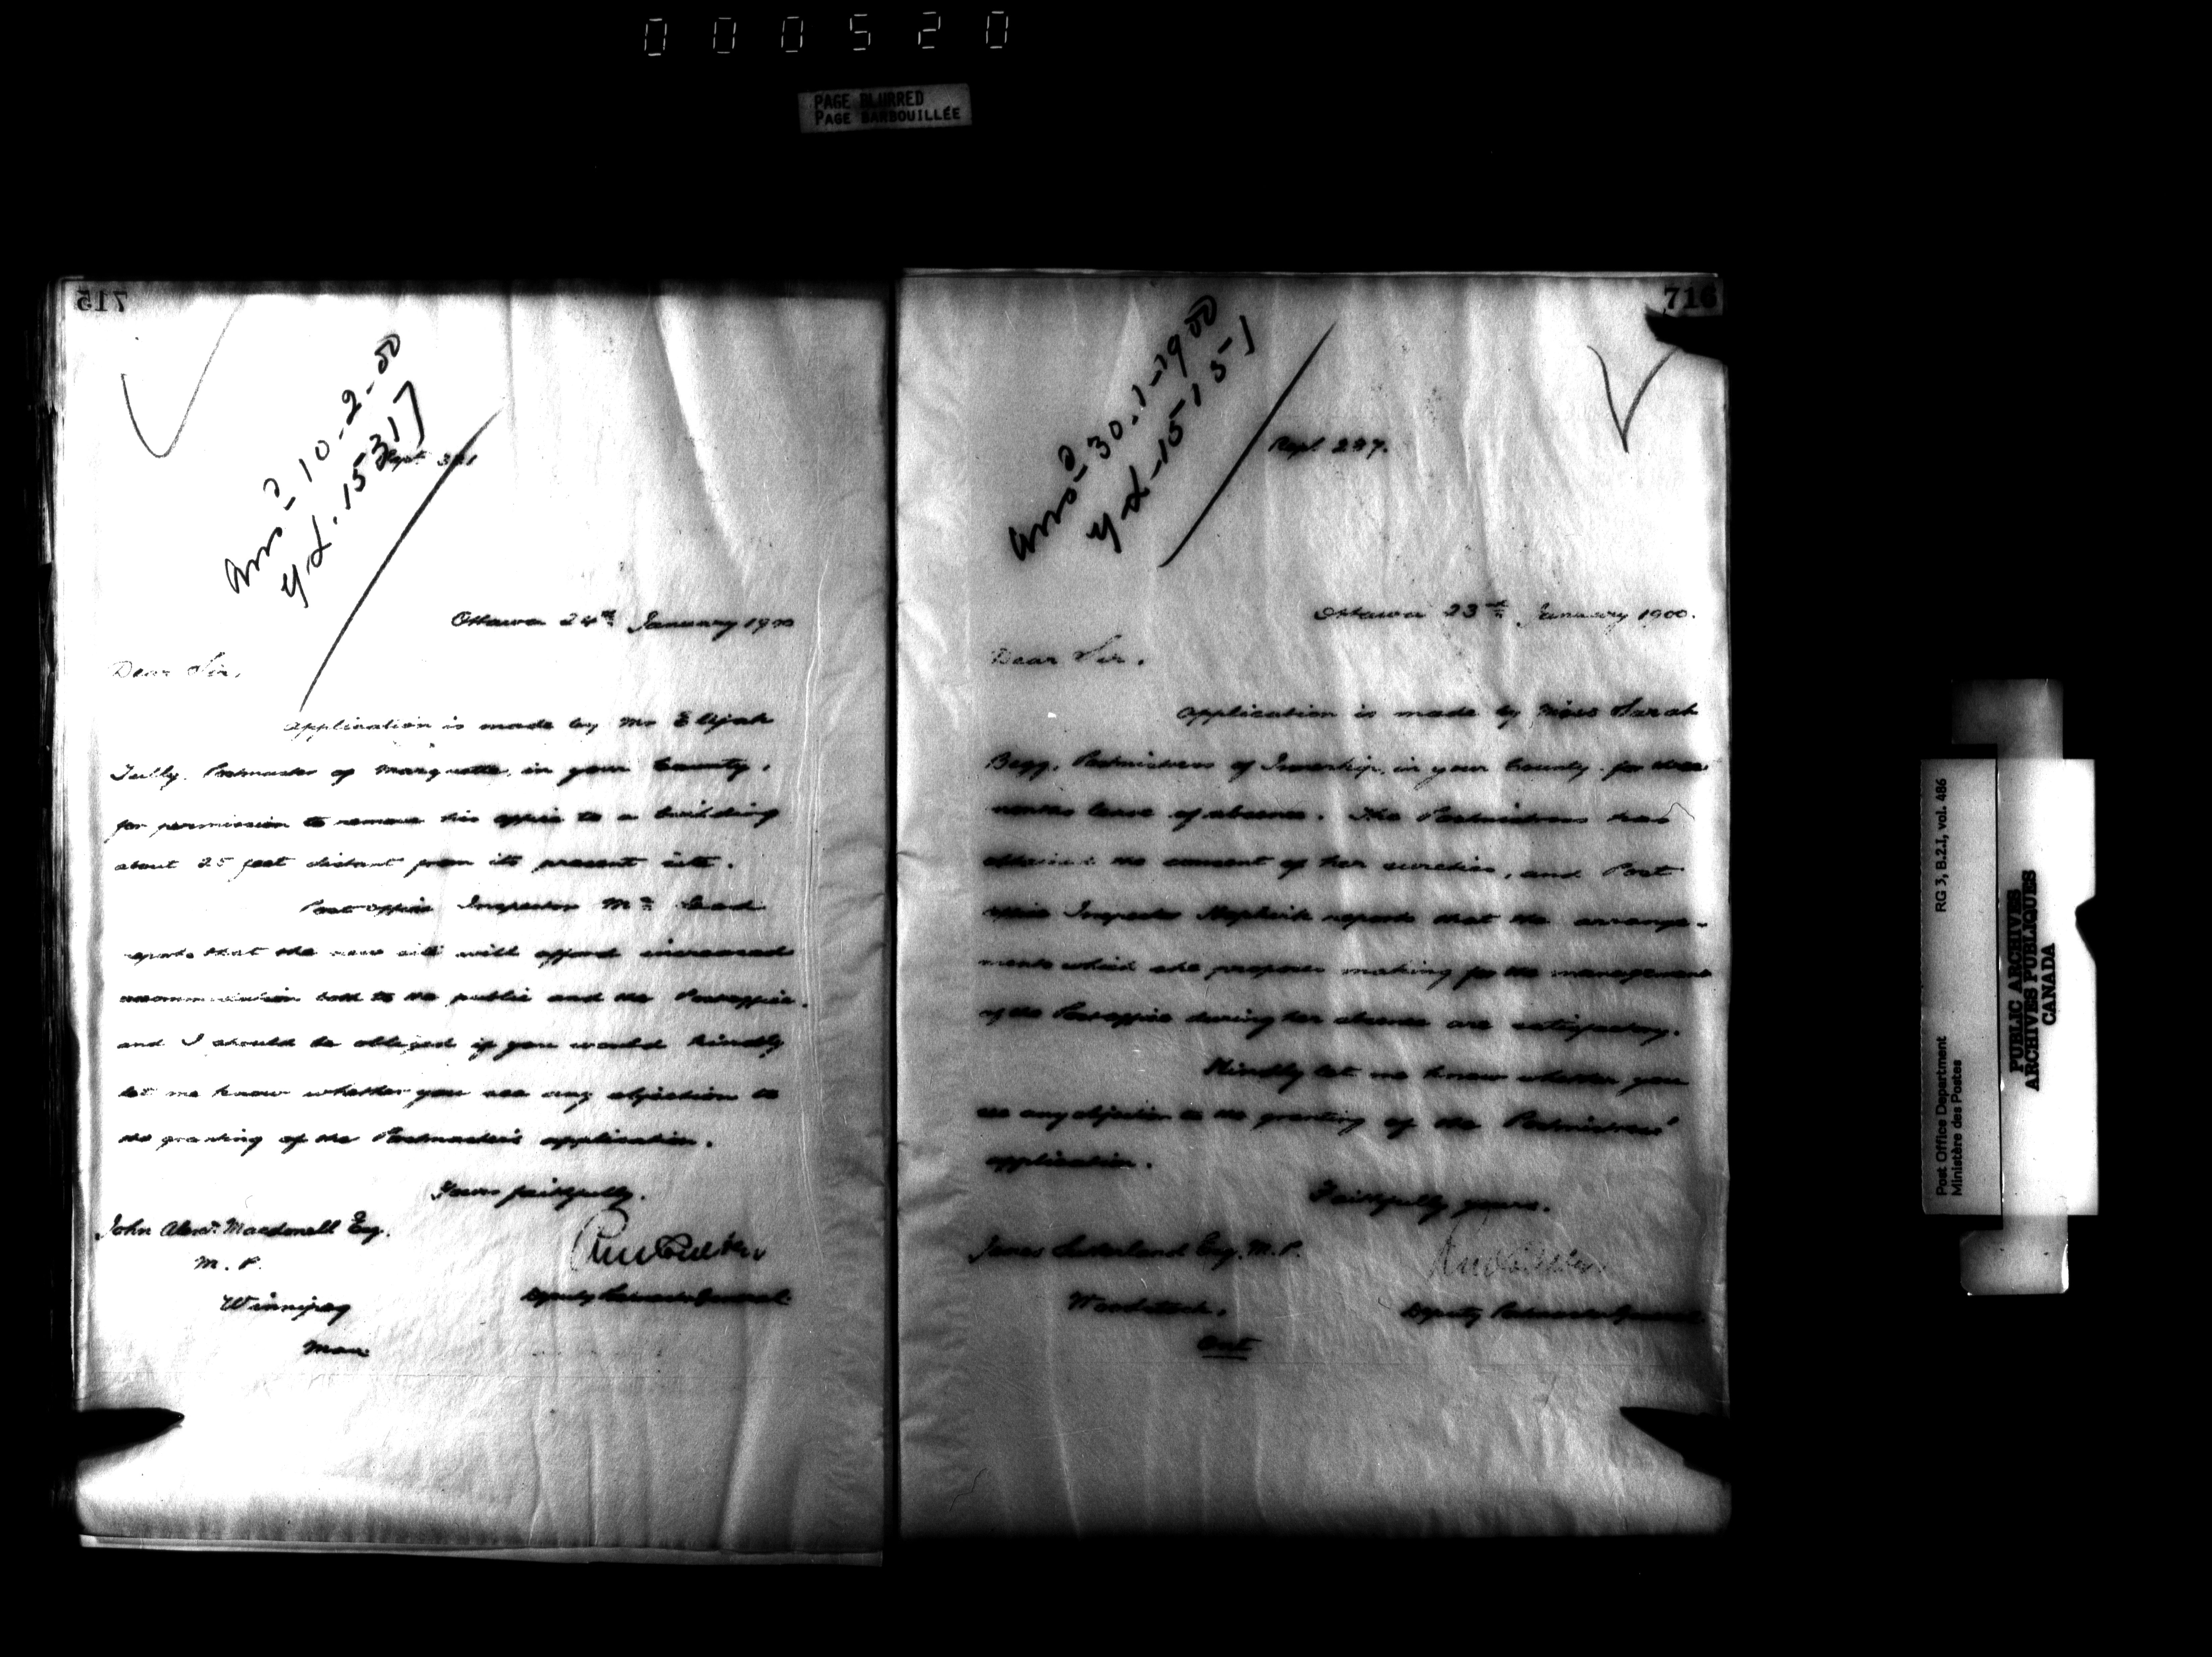 000520
PAGE BLURRED
PAGE BARBOUILLÉE
715
Ans^d 10-2-00
yd. 15317
Rept. 321
Ottawa 24th January 1900
Dear Sir,
Application is made by Mr Elijah
Tully, Postmaster of Marquette, in your County,
for permission to remove his office to a building
about 25 feet distant from its present site.
Post Office Inspector McLeod
reports that the new site will afford increased
accommodation both to the public and the Post office,
and I should be obliged if you would kindly
let me know whether you see any objection to
the granting of the Postmaster's application.
Yours faithfully,
John Alexr. Macdonell Esq.
M. P.
Winnipeg
Man
Deputy Postmaster General.
716
Ans^d 30-1-1900
yd-15151
Rept. 287.
Ottawa 23rd January 1900.
Dear Sir,
Application is made by Miss Sarah
Begg, Postmistress of Innerkip, in your County for three
months leave of absence. The Postmistress has
obtained the consent of her sureties, and Post
office Inspector Hopkirk reports that the arrange-
ments which she proposes making for the management
of the Post office during her absence are satisfactory.
Kindly let me know whether you
see any objection to the granting of the Postmistress'
application.
Faithfully yours,
James Sutherland Esq. M. P.
Woodstock,
Ont
Deputy Postmaster General
Post Office Department
Ministère des Postes
RG 3, B.2.I, vol. 486
PUBLIC ARCHIVES
ARCHIVES PUBLIQUES
CANADA